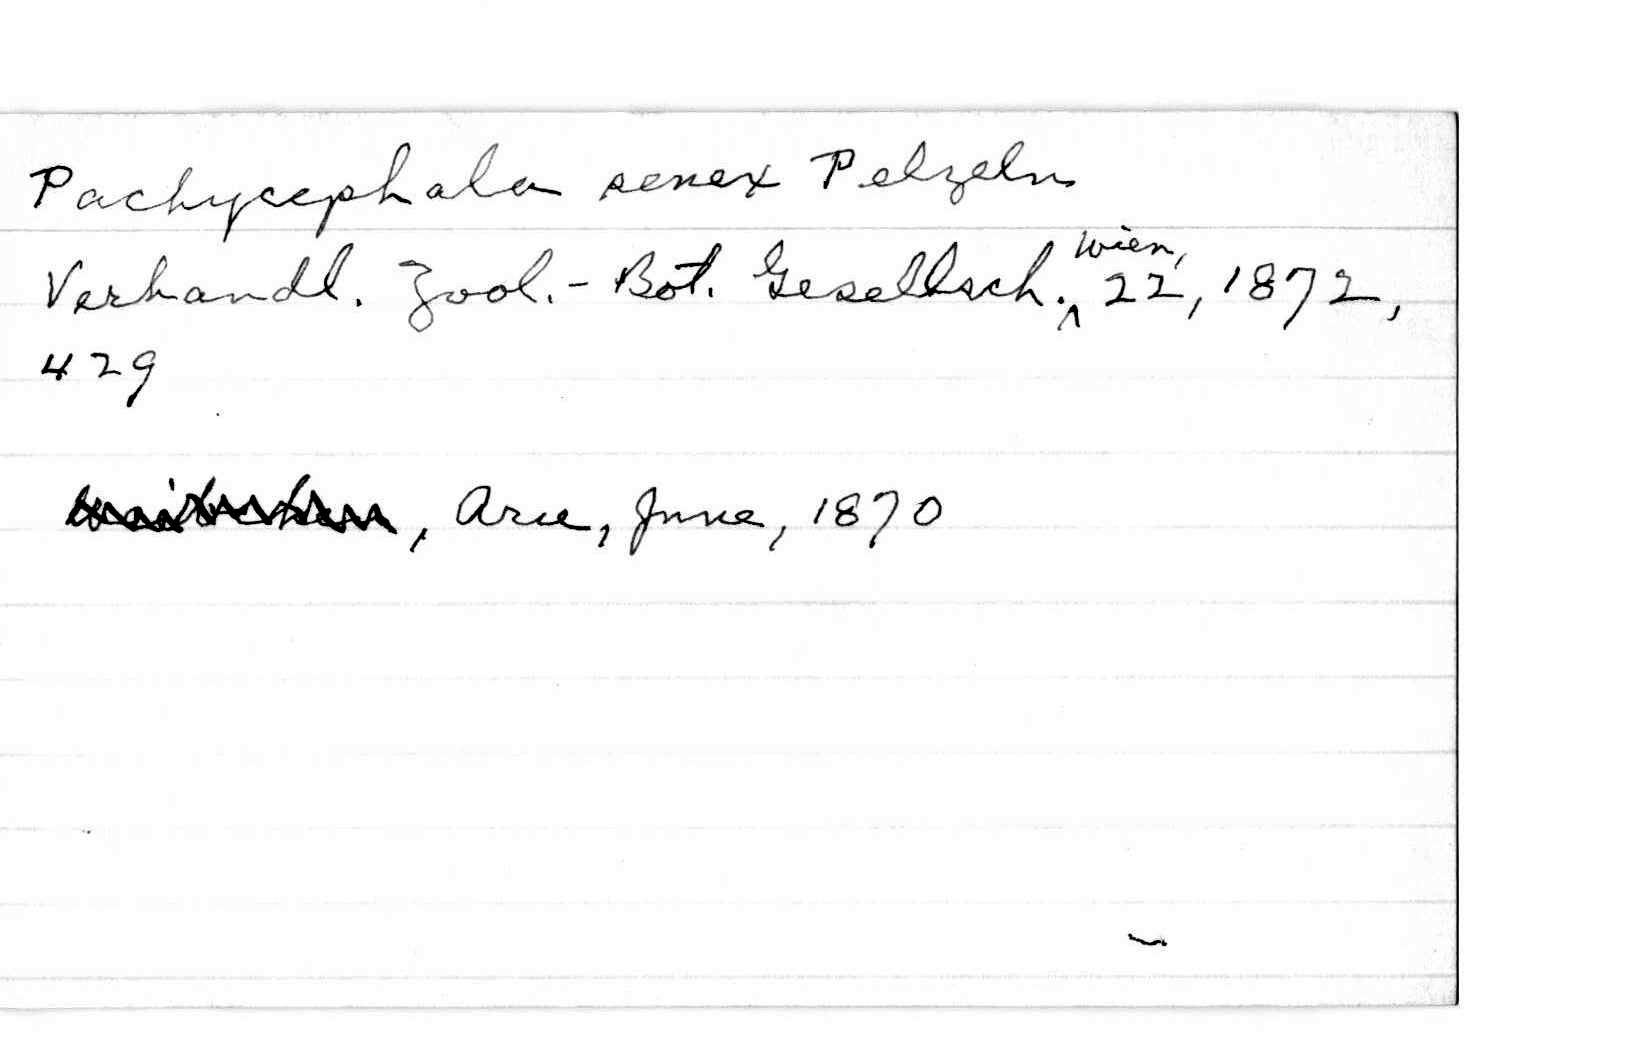 Pachycephala senex Pelzeln
Verhandl. Zool.-Bot. Gesellsch. Wien, 22, 1872,
429
, Arce, June, 1870